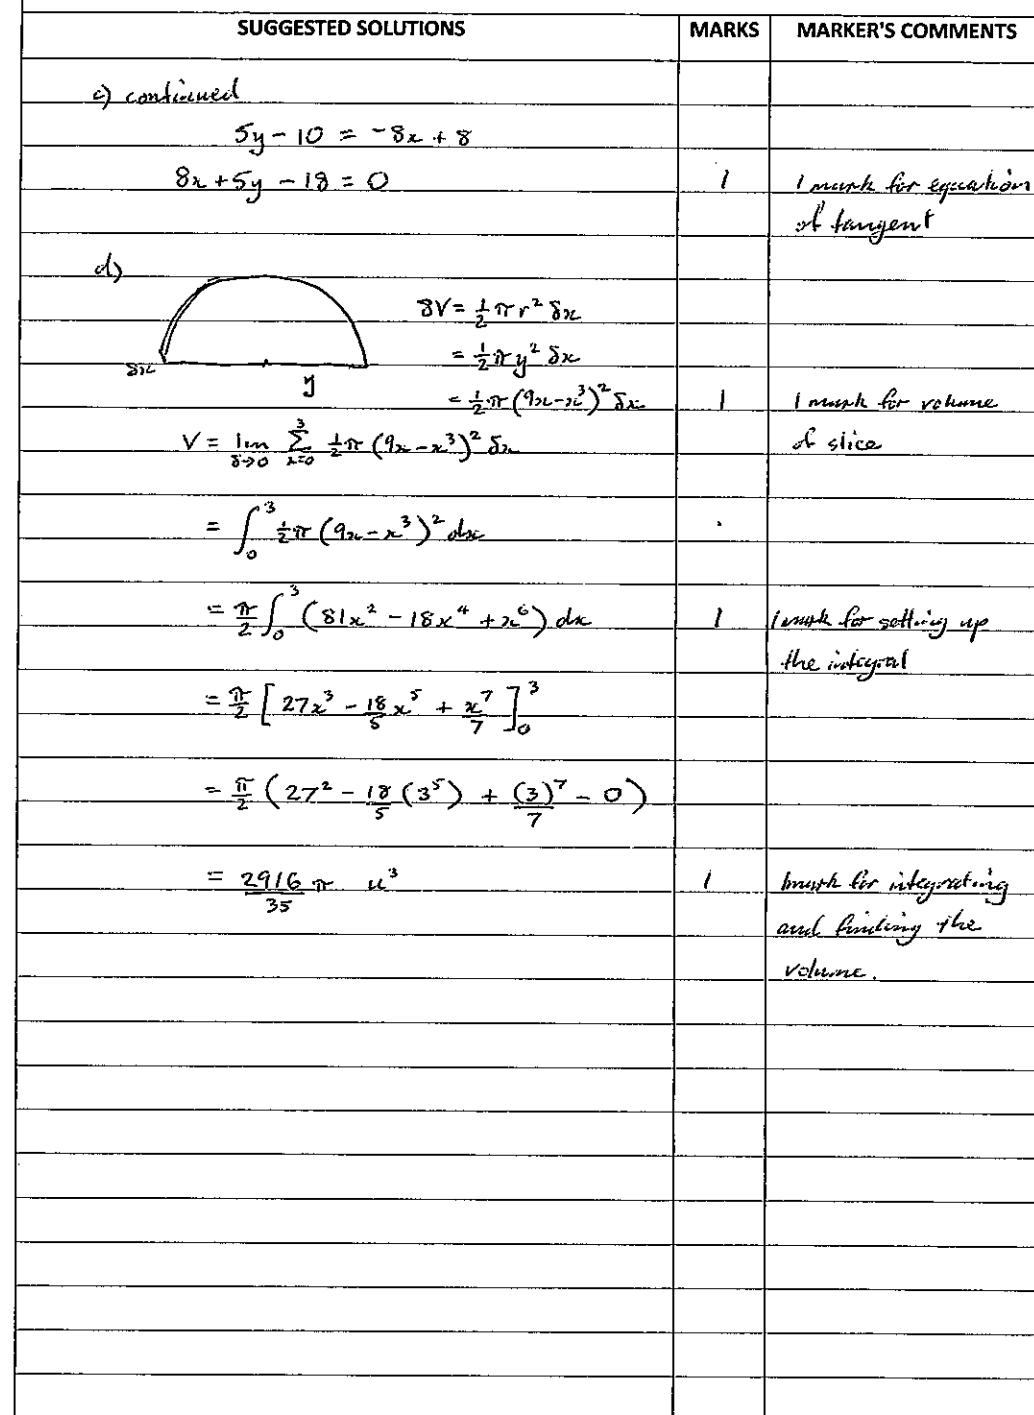 SUGGESTED SOLUTIONS MARKS MARKER'S COMMENTS
c) continued
5y - 10 = -8x + 8
8x + 5y - 18 = 0 1 1 mark for equation
of tangent
d)
δV = 1/2 π r² δx
δx = 1/2 π y² δx
y
= 1/2 π (9x - x³)² δx 1 1 mark for volume
of slice
V = lim δ→0 Σ x=0 3 1/2 π (9x - x³)² δx
= ∫₀³ 1/2 π (9x - x³)² dx
= π/2 ∫₀³ (81x² - 18x⁴ + x⁶) dx 1 1 mark for setting up
the integral
= π/2 [27x³ - 18/5 x⁵ + x⁷/7]₀³
= π/2 (27² - 18/5 (3⁵) + (3)⁷/7 - 0)
= 2916/35 π u³ 1 1 mark for integrating
and finding the
volume.